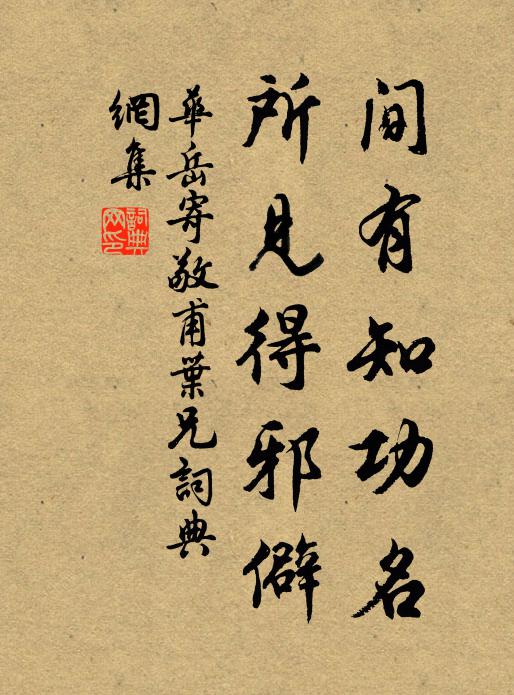 間有知功名
所見得邪僻
華岳寄敬甫葉兄詞典
網集
詞典
网印